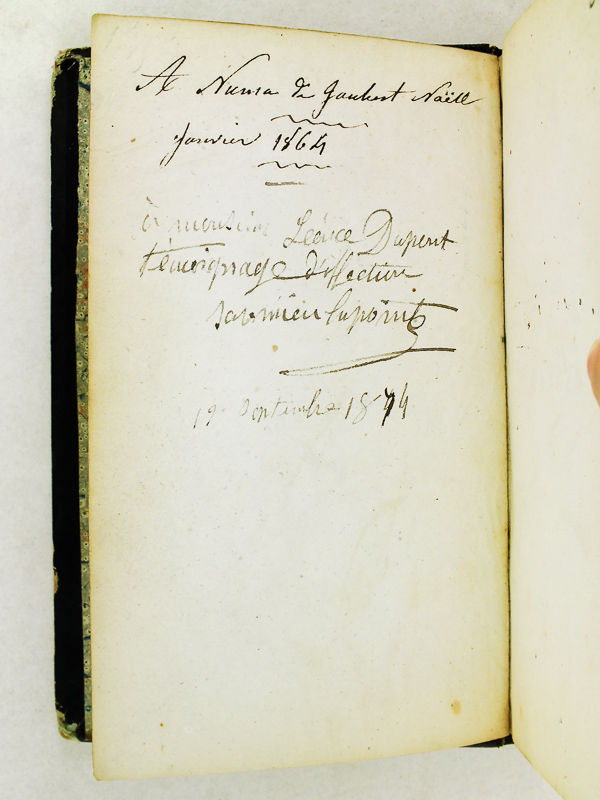 A Numa de Joubert Naëll
Janvier 1864
à monsieur Léonce Dupont
témoignage d'affection
Savinien Lapointe
19 Septembre 1874